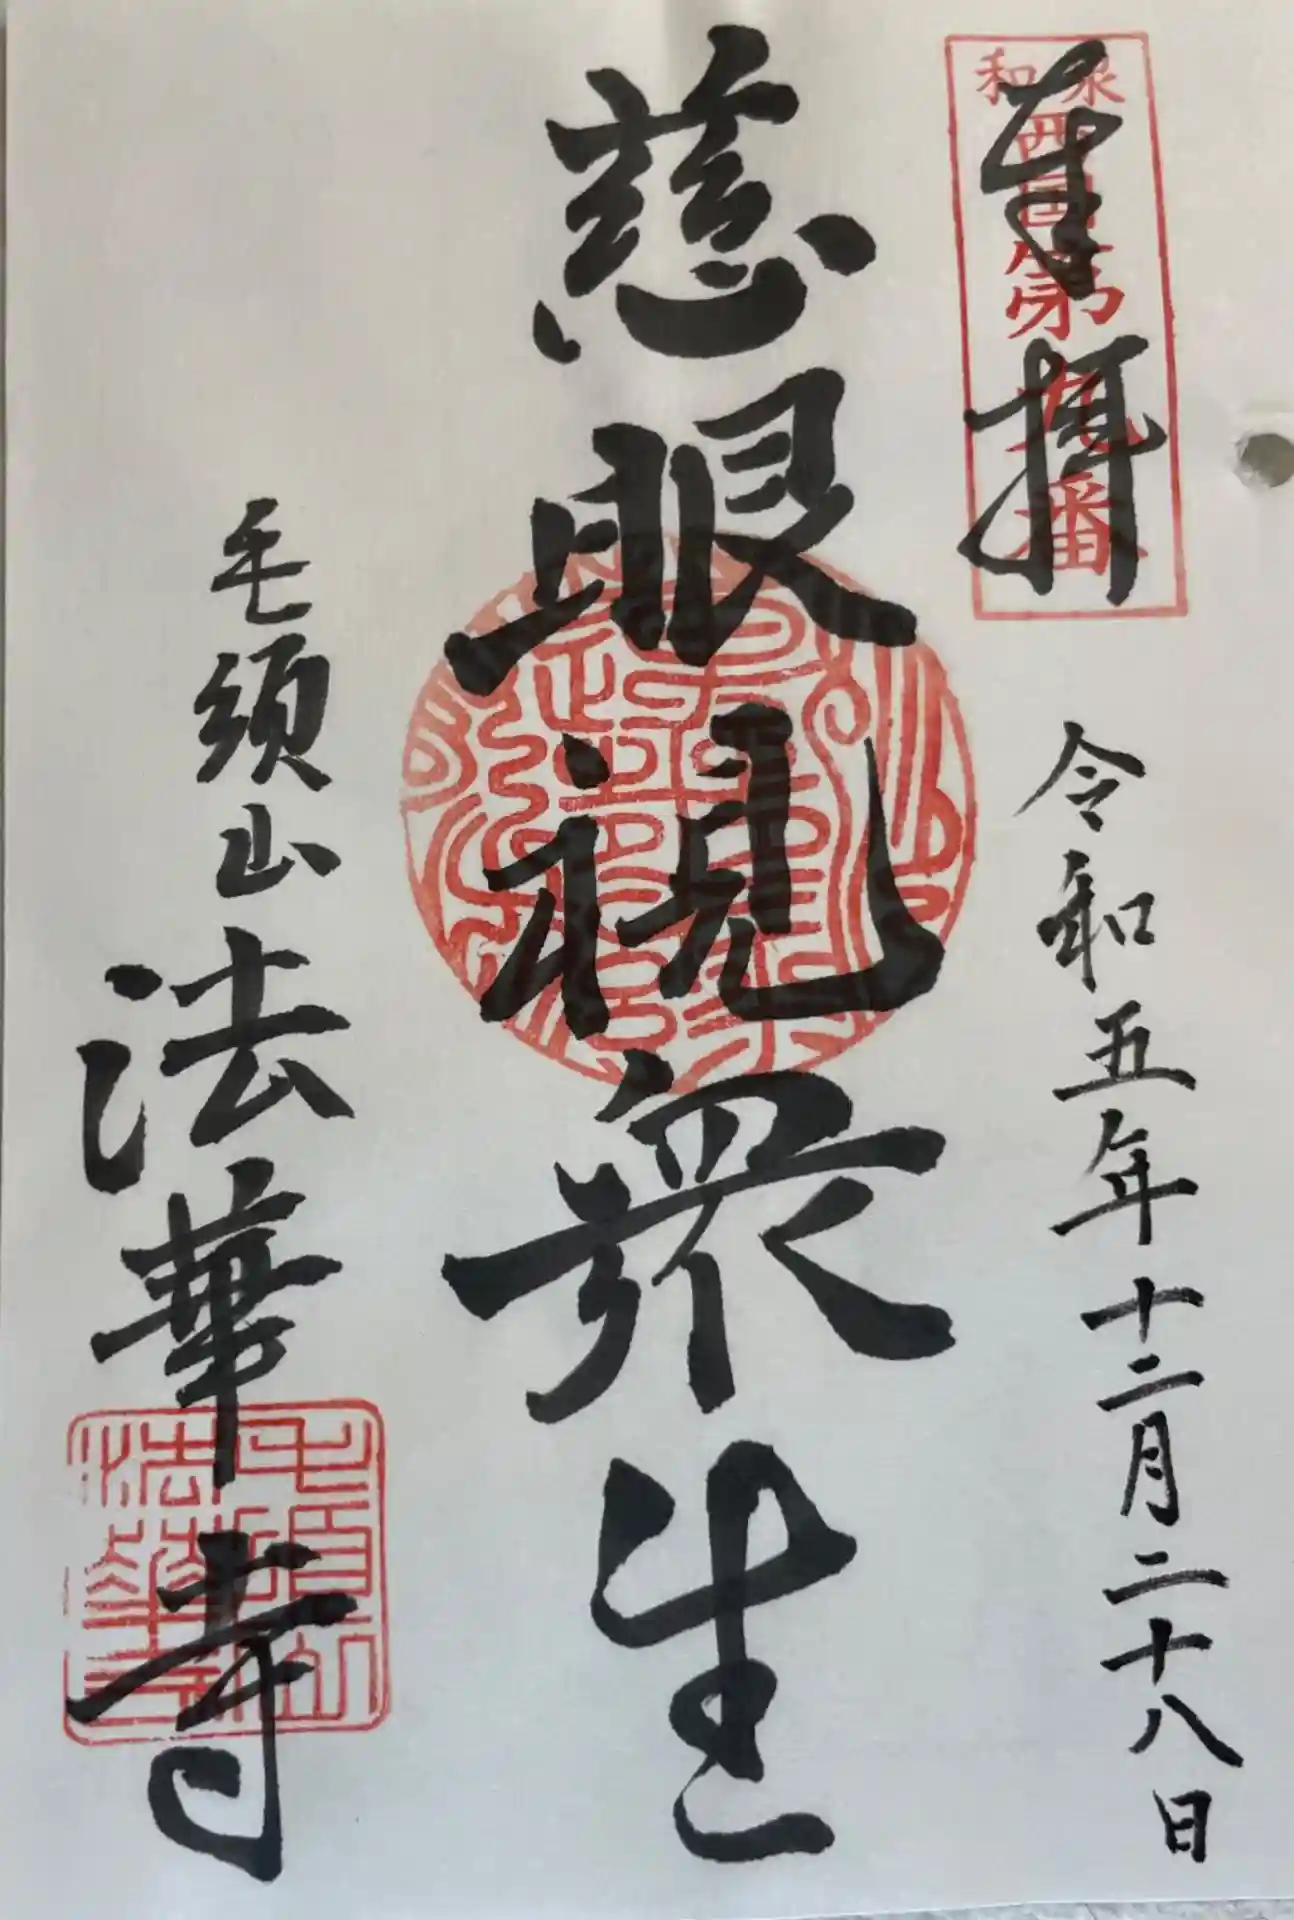 奉拝
和泉西国第九番
令和五年十二月二十八日
慈眼視衆生
毛須山法華寺
毛須山
法華寺